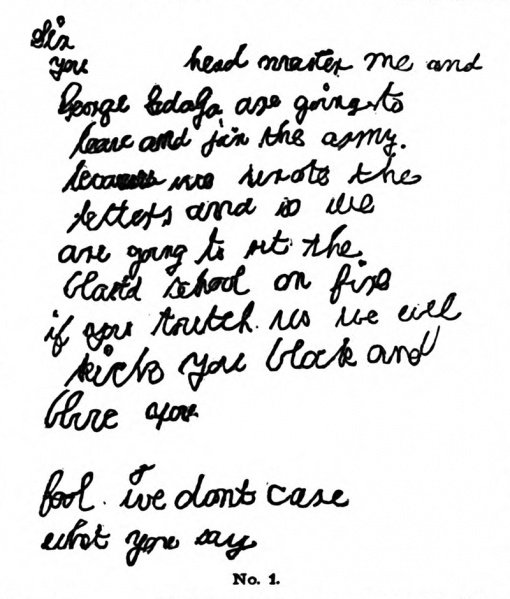 Sir
you head master me and
George Edalji are going to
leave and join the army.
because we wrote the
letters and so we
are going to set the
school on fire
if you toutch us we will
kick you black and
blue you
fool. we dont care
what you say
No. 1.